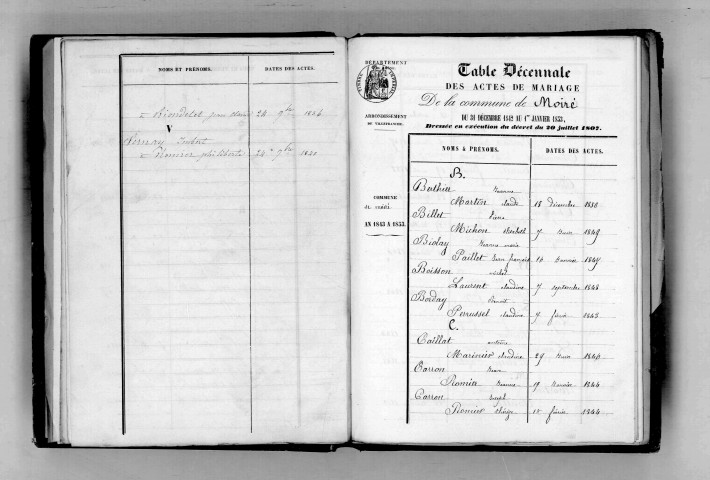 NOMS ET PRÉNOMS. DATES DES ACTES.
24 9bre 1846
V
24 9bre 1840
DÉPARTEMENT
ARRONDISSEMENT
DE VILLEFRANCHE.
COMMUNE
de Moiré
AN 1843 A 1853.
Table Décennale
DES ACTES DE MARIAGE
De la commune de Moiré
DU 31 DÉCEMBRE 1842 AU 1er JANVIER 1853,
Dressée en exécution du décret du 20 juillet 1807.
NOMS & PRÉNOMS. DATES DES ACTES.
B.
Bathier Jeanne
Martin claude 18 décembre 1850
Billet Pierre
Michon 7 1849
Biolay Jeanne marie
Paillet Jean françois 16 Janvier 1849
Boisson michel
Laurent claudine 7 septembre 1848
Borday Benoit
Perrussel claudine 7 février 1843
C.
Caillat antoine
Marinier claudine 29 1846
Carron Jean
Pionier Jeanne 19 Janvier 1844
Carron Joseph
Pionier 18 février 1844